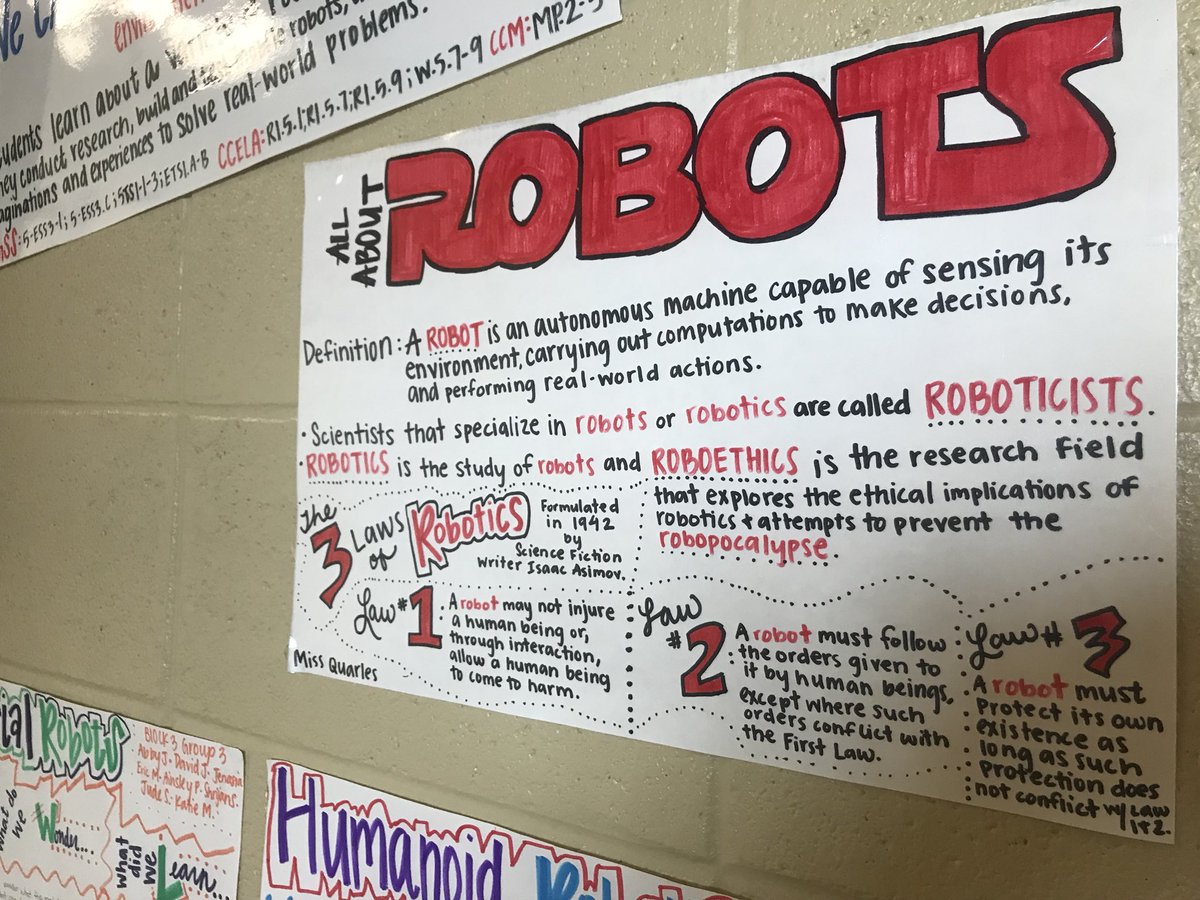 students learn about a
they conduct research, build and robots,
imaginations and experiences to solve real-world problems.
5-ESS3-1; 5-ESS3.C; 5TS1-1-3; ETS1.A-B CCELA: R1.5.1; R1.5.7; R1.5.9; W.5.7-9 CCM: MP.2-5
ALL
ABOUT
ROBOTS
Definition: A ROBOT is an autonomous machine capable of sensing its
environment, carrying out computations to make decisions,
and performing real-world actions.
· Scientists that specialize in robots or robotics are called ROBOTICISTS.
· ROBOTICS is the study of robots and ROBOETHICS is the research field
that explores the ethical implications of
robotics + attempts to prevent the
robopocalypse.
The
3 Laws
of Robotics
Formulated
in 1942
by
Science Fiction
Writer Isaac Asimov.
Law #1
A robot may not injure
a human being or,
through interaction,
allow a human being
to come to harm.
Law
#2
A robot must follow
the orders given to
it by human beings,
except where such
orders conflict with
the First Law.
Law # 3
A robot must
protect its own
existence as
long as such
protection does
not conflict w/ Law
1+2.
Miss Quarles
Robots
BLOCK 3 Group 3
Abby J. David J.
Eric M. Ainsley P.
Jude S. Katie M.
what do
we
Wonder...
what
did
we
Learn...
Humanoid